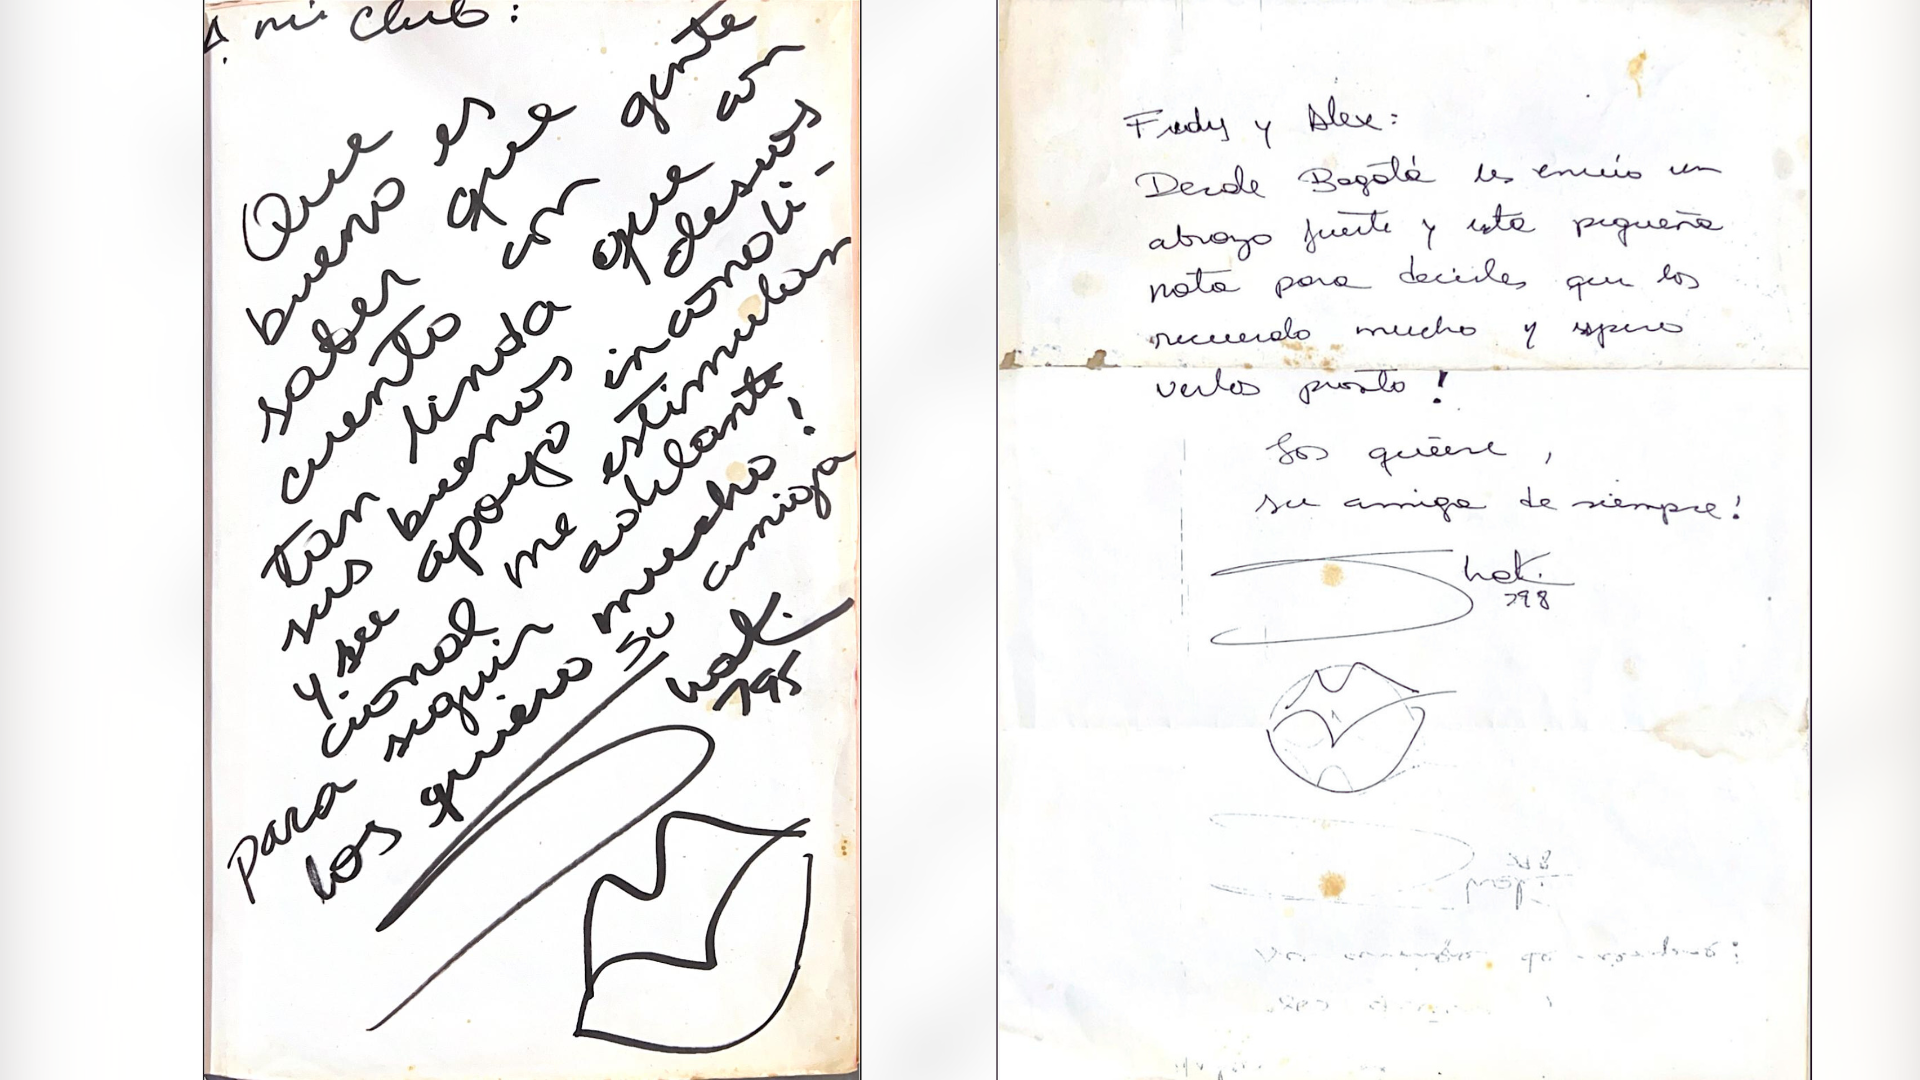 A mi club:
Que
bueno es
saber que
cuento con gente
tan linda que con
sus buenos deseos
y su apoyo incondi-
cional me estimulan
para seguir adelante
los quiero mucho!
su amiga
795
Fredy y Alex:
Desde Bogotá les envío un
abrazo fuerte y esta pequeña
nota para decirles que los
recuerdo mucho y espero
verlos pronto!
Los quiere,
su amiga de siempre!
798